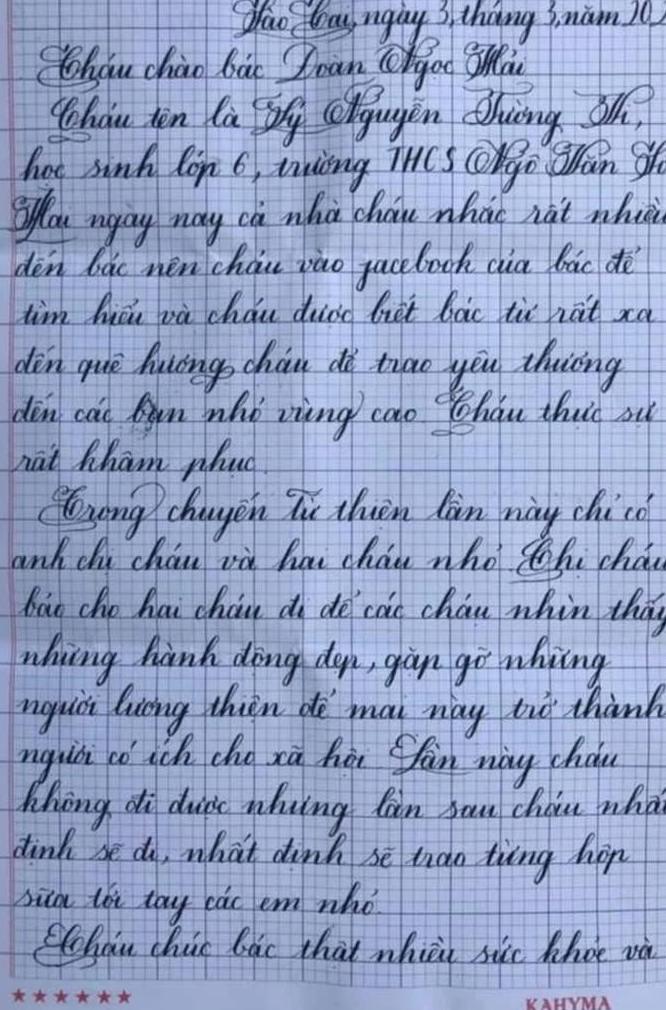 Lào Cai, ngày 3, tháng 3, năm 202
Cháu chào bác Đoàn Ngọc Hải
Cháu tên là Lý Nguyễn Tường Vi,
học sinh lớp 6, trường THCS Ngô Văn
Mấy ngày nay cả nhà cháu nhắc rất nhiều
đến bác nên cháu vào facebook của bác để
tìm hiểu và cháu được biết bác từ rất xa
đến quê hương cháu để trao yêu thương
đến các bạn nhỏ vùng cao. Cháu thực sự
rất khâm phục.
Trong chuyến từ thiện lần này chỉ có
anh chị cháu và hai cháu nhỏ. Chị cháu
bảo cho hai cháu đi để các cháu nhìn thấy
những hành động đẹp, gặp gỡ những
người lương thiện để mai này trở thành
người có ích cho xã hội. Lần này cháu
không đi được nhưng lần sau cháu nhất
định sẽ đi, nhất định sẽ trao từng hộp
sữa tới tay các em nhỏ.
Cháu chúc bác thật nhiều sức khỏe và
KAHYMA